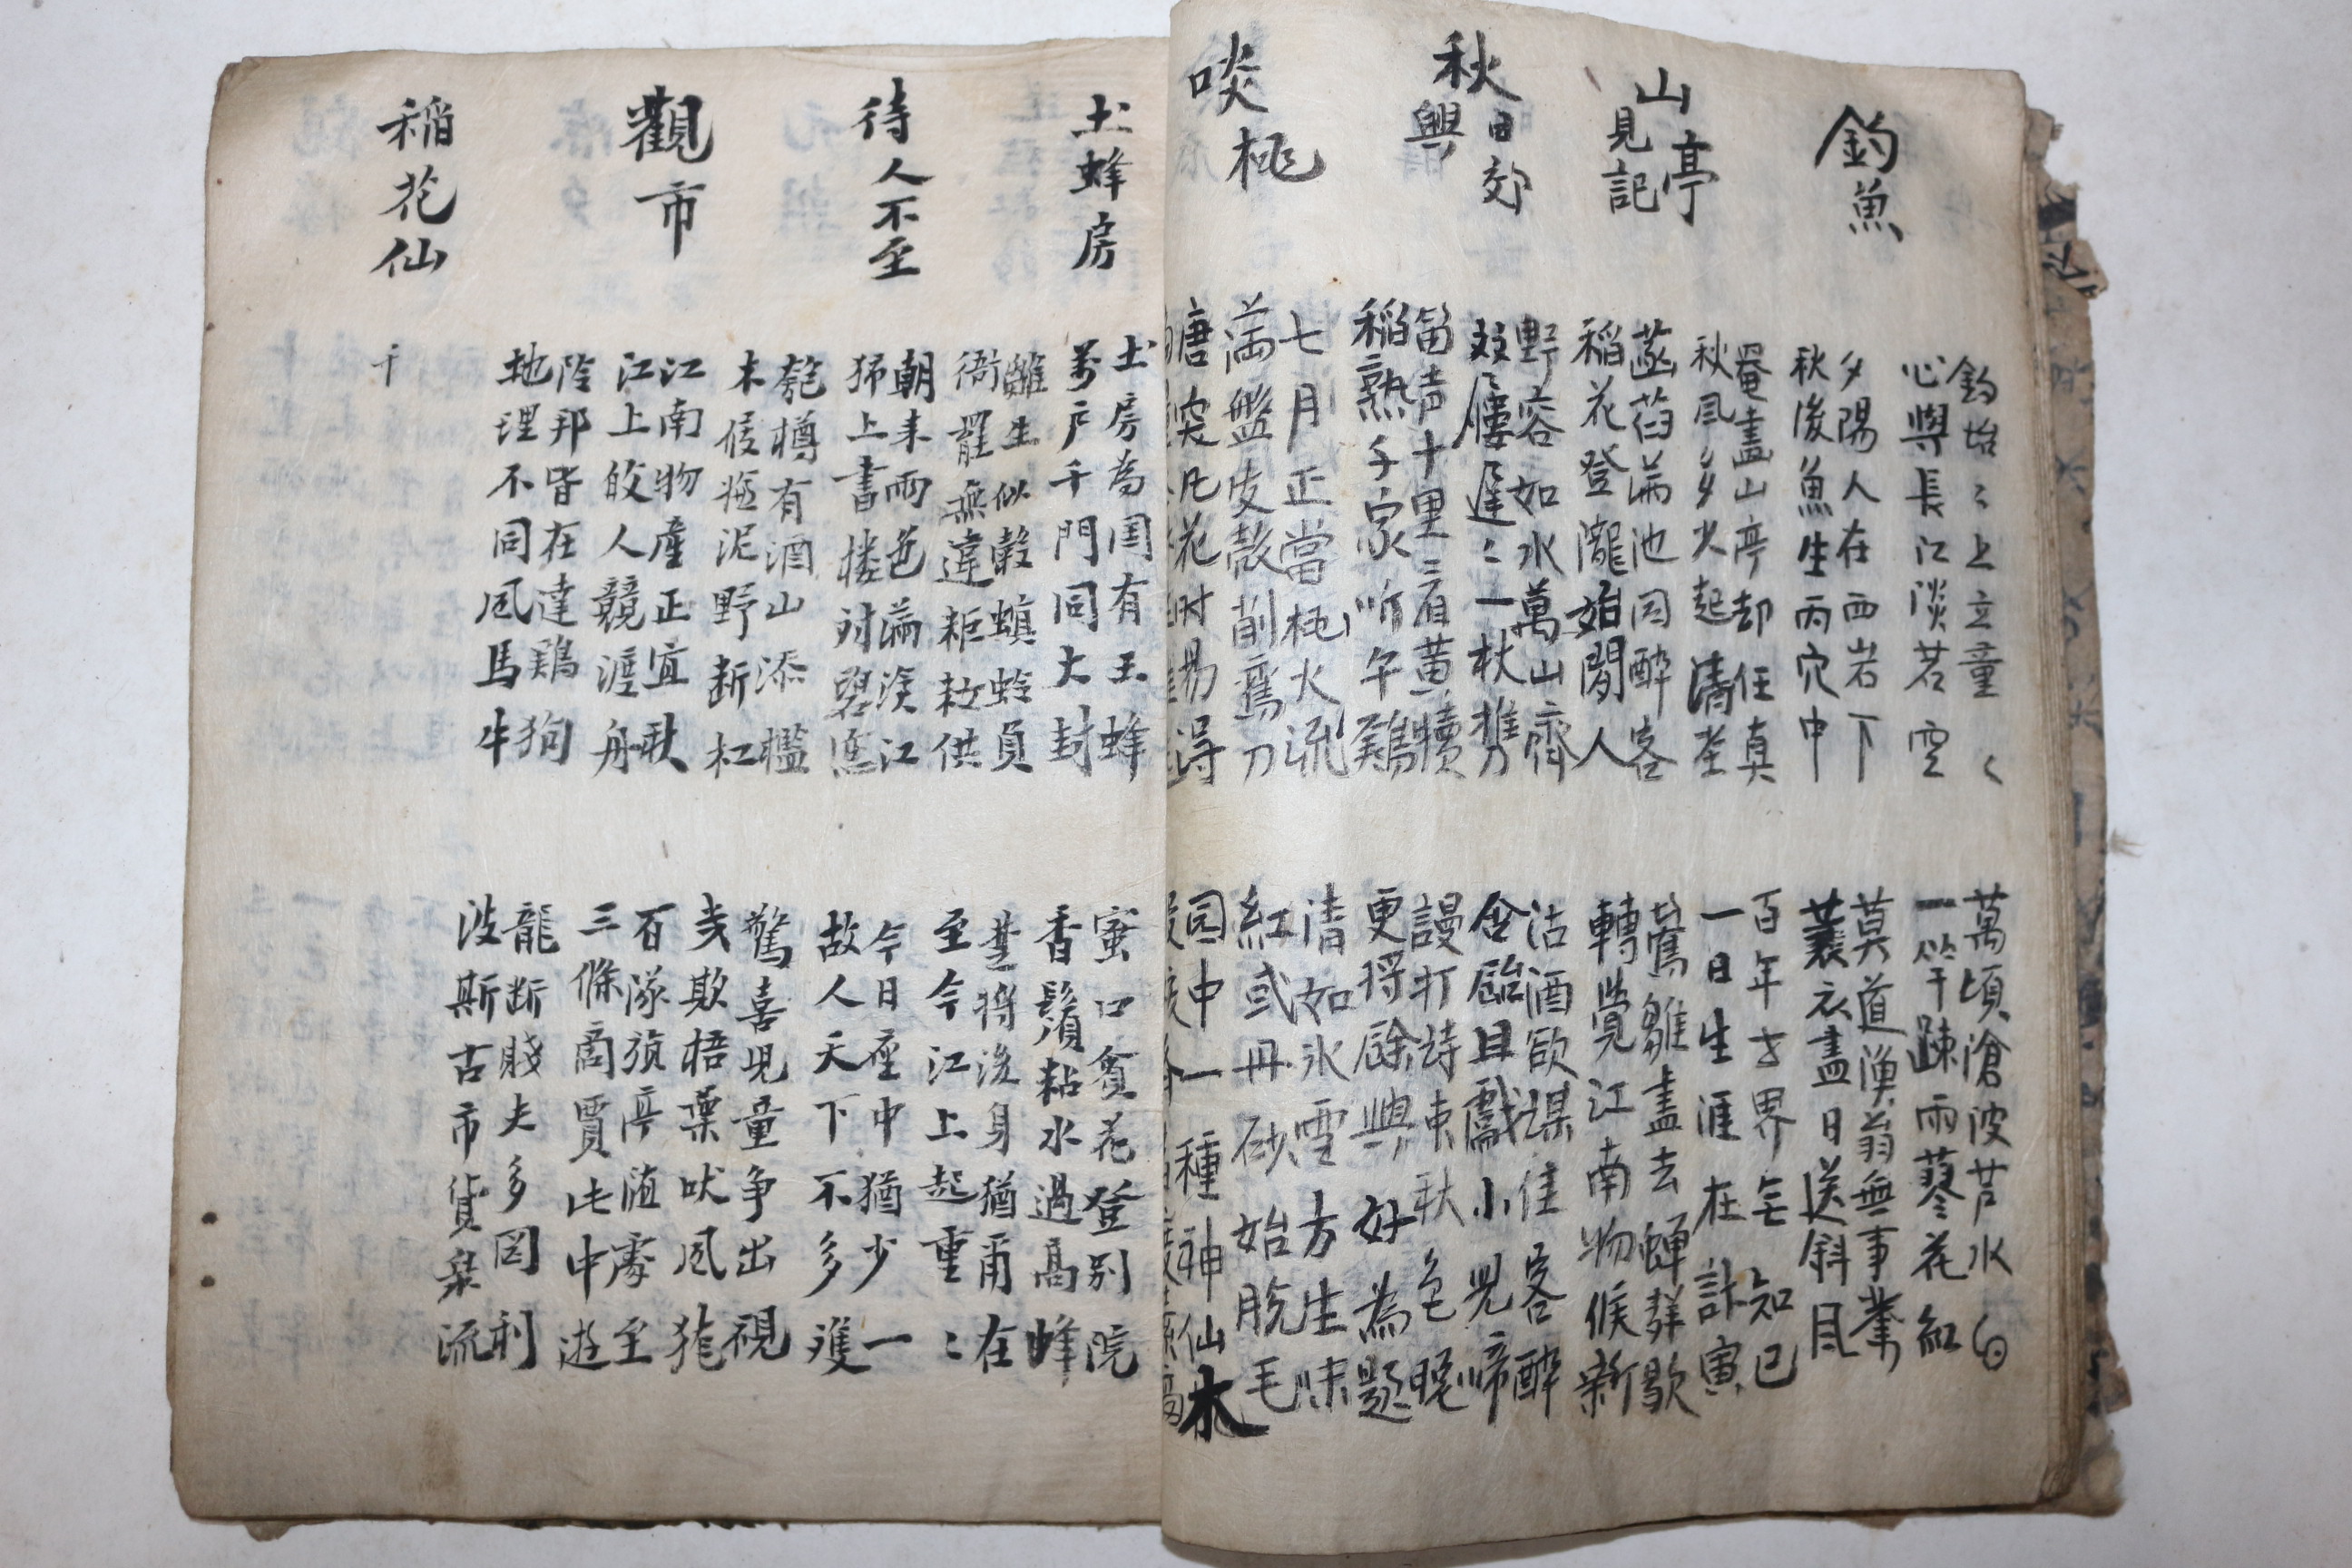 釣魚
釣坮〻上立童〻
心與長江淡若空
萬頃滄波芦水白
一竿踈雨蓼花紅
夕陽人在西岩下
秋後魚生丙穴中
莫道漁翁無事業
蓑衣盡日送斜風
山亭見記
罨畫山亭却任真
秋風夕火起清荃
百年世界無知已
一日生涯在計寅
菡萏滿池因醉客
稻花登隴始閒人
鶯雛盡去蟬群歇
轉覺江南物候新
秋日郊興
野容如水萬山齊
双屨遅〻一杖携
沽酒欲謀佳客醉
含飴且戱小児啼
笛声十里看黄犢
稻熟千家听午鷄
謾打詩東秋色晚
更将餘興好為題
啖桃
七月正當桃火流
満盤皮殼削鸞刀
清如氷雪方生味
紅或丹砂始脫毛
唐突凡花时易得
园中一種神仙木
土蜂房
土房為国有王蜂
万户千門同大封
蜜口貪花登别院
香鬚粘水過高峰
離生似殼螟蛉員
衙罷無違粔籹供
楚将後身猶甬在
至今江上起重〻
待人不至
朝来雨色滿溪江
上書楼对碧窓
今日座中猶少一
故人天下不多雙
匏樽有酒山添檻
木屐泥野断杠
驚喜児童争出視
欺梧葉吠風狵
觀市
江南物產正宜秋
江上皎人競渡舟
百隊旗亭随處至
三條商賈此中遊
陰邦皆在達鷄狗
地理不同風馬牛
龍断賤夫多罔利
波斯古市貨泉流
稻花仙
千